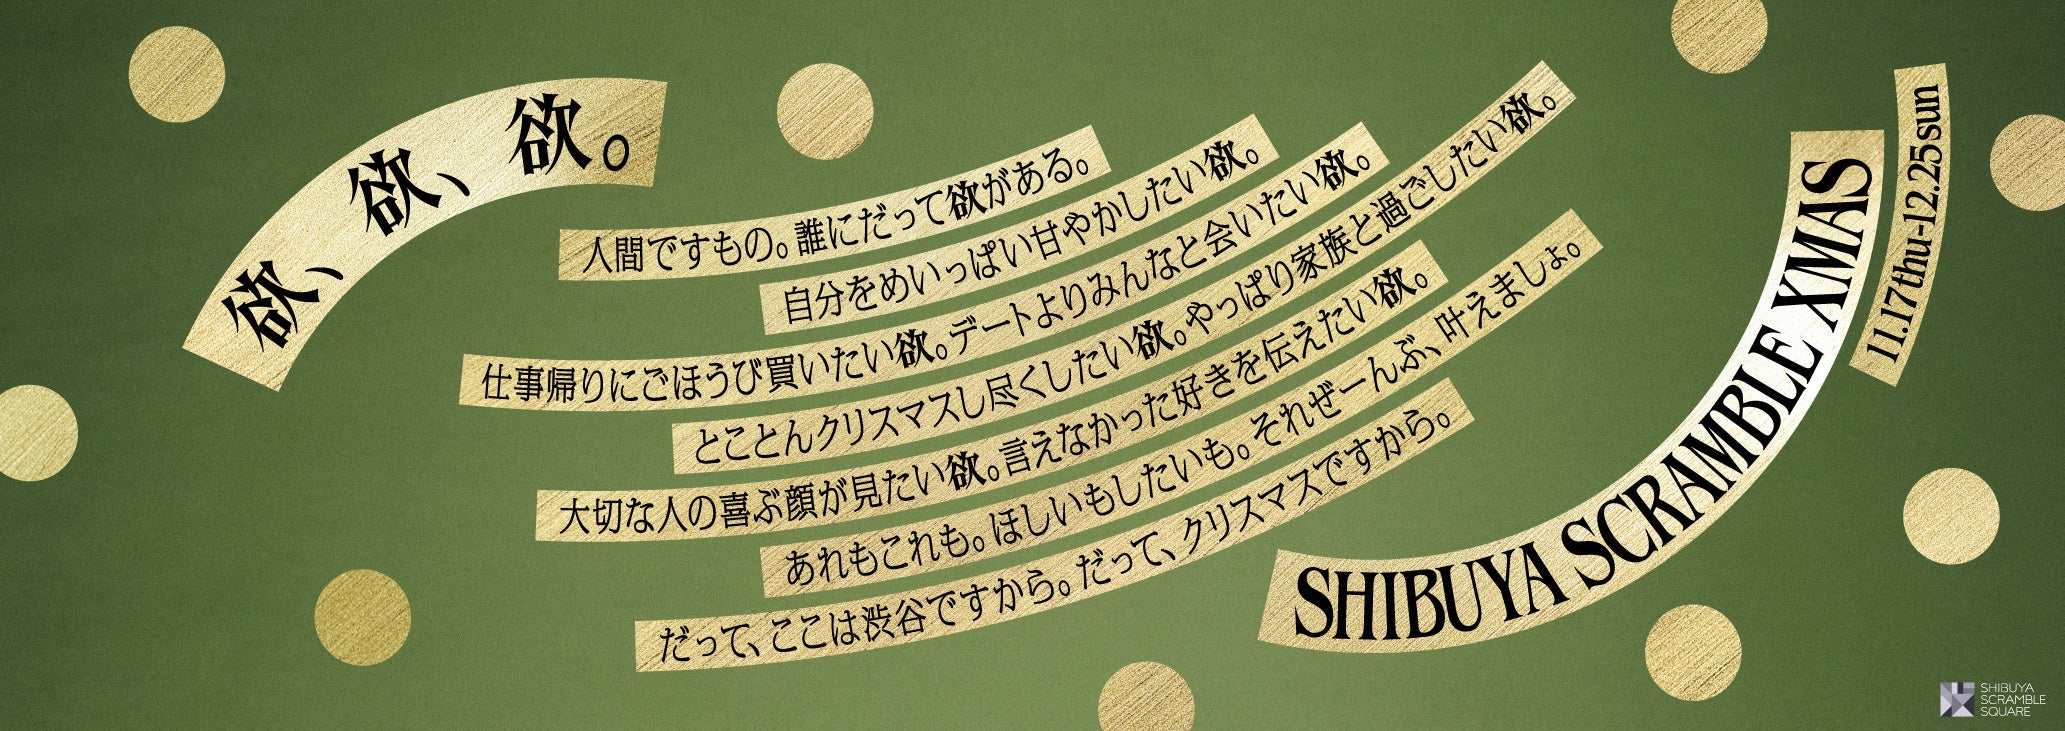 欲、欲、欲。
人間ですもの。誰にだって欲がある。
自分をめいっぱい甘やかしたい欲。
仕事帰りにごほうび買いたい欲。デートよりみんなと会いたい欲。
とことんクリスマスし尽くしたい欲。やっぱり家族と過ごしたい欲。
大切な人の喜ぶ顔が見たい欲。言えなかった好きを伝えたい欲。
あれもこれも。ほしいもしたいも。それぜーんぶ、叶えましょ。
だって、ここは渋谷ですから。だって、クリスマスですから。
SHIBUYA SCRAMBLE XMAS
11.17thu-12.25sun
SHIBUYA
SCRAMBLE
SQUARE